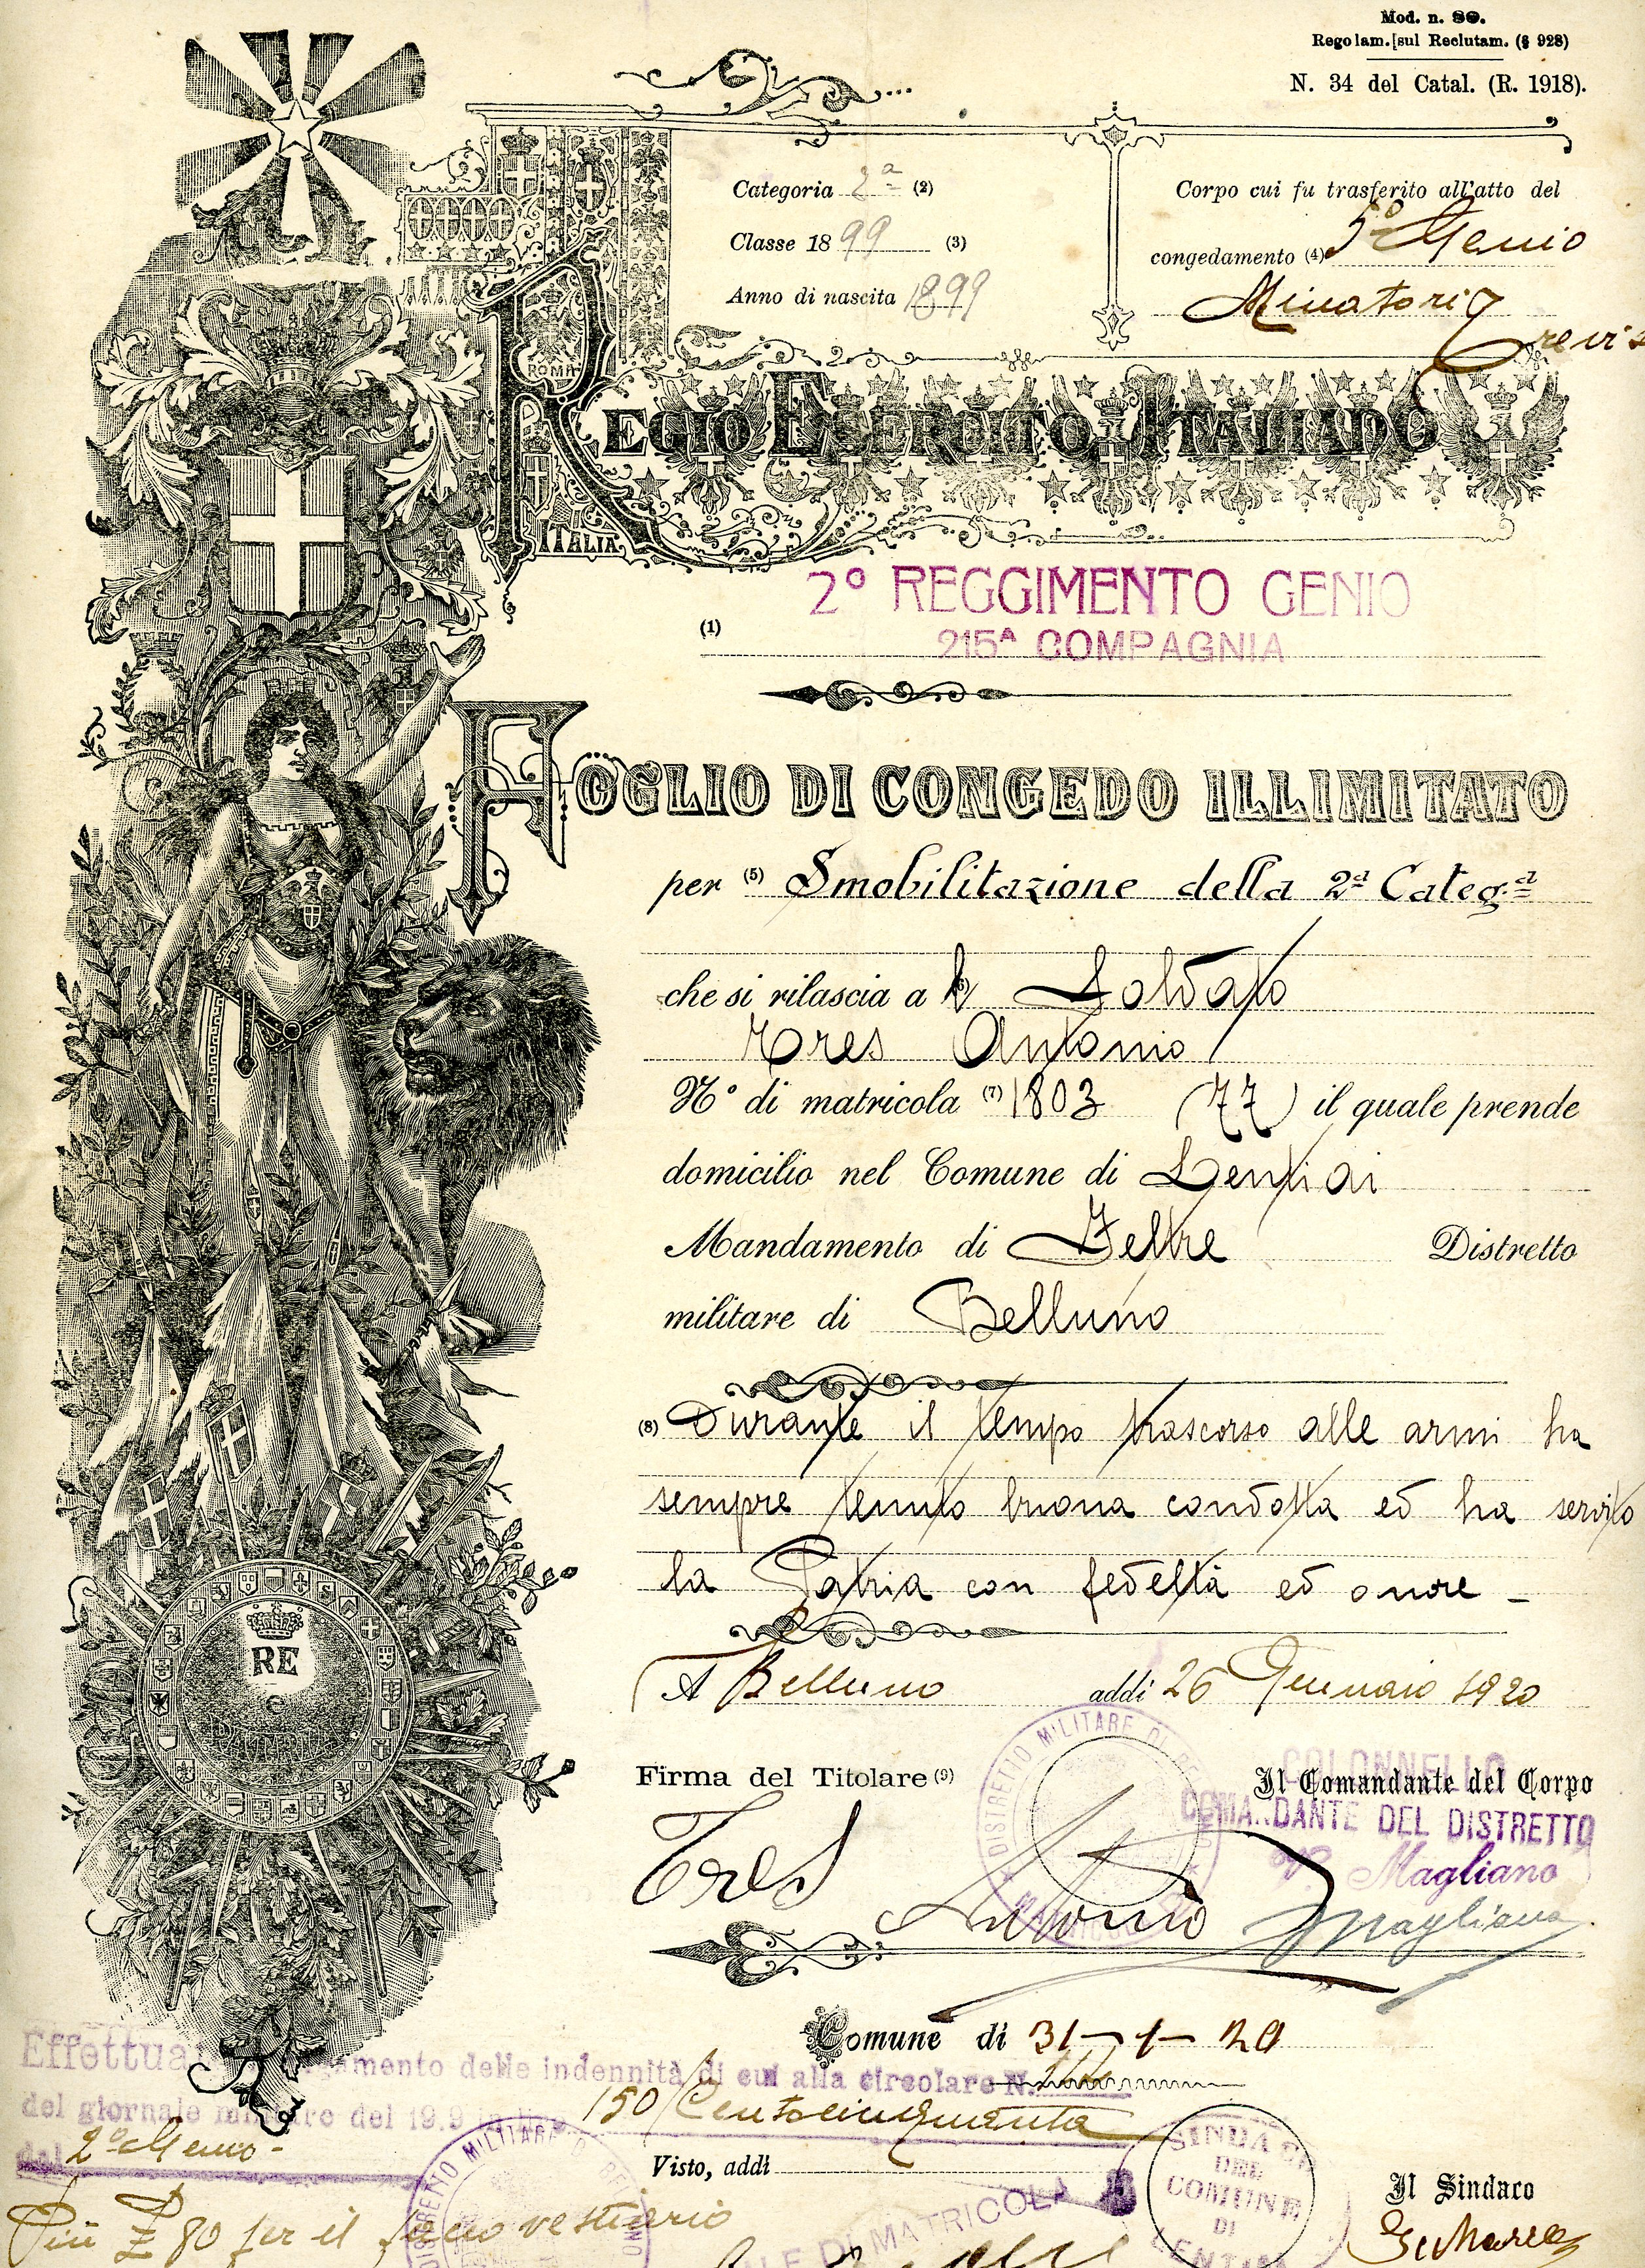 Mod. n. 80.
Regolam. [sul Reclutam. (§ 928)
N. 34 del Catal. (R. 1918).
Categoria 2ª (2)
Classe 18 99 (3)
Anno di nascita 1899
Corpo cui fu trasferito all'atto del
congedamento (4) 5° Genio
Minatori
ROMA
REGIO ESERCITO ITALIANO
ITALIA
2° REGGIMENTO GENIO
(1)
215ᴬ COMPAGNIA
FOGLIO DI CONGEDO ILLIMITATO
per (5) Smobilitazione della 2ª Categ.ª
che si rilascia a l Soldato
Tres Antonio
N° di matricola (7) 1803 (77) il quale prende
domicilio nel Comune di Lentiai
Mandamento di Feltre Distretto
militare di Belluno
(8) Durante il tempo trascorso alle armi ha
sempre tenuto buona condotta ed ha servito
la Patria con fedeltà ed onore -
A Belluno addì 26 Gennaio 1920
RE
DISTRETTO MILITARE DI BELLUNO
Firma del Titolare (9)
COLONNELLO
Il Comandante del Corpo
COMANDANTE DEL DISTRETTO
Magliano
Tres Antonio
Magliano
Comune di 31-1-20
amento delle indennità di cui alla circolare N.
del giornale del 19.9 150 Centocinquanta
del 2° Genio -
Visto, addì
DISTRETTO MILITARE
MATRICOLA
SINDACO
DEL
COMUNE
DI
Il Sindaco
Più £ 80 per il pacco vestiario